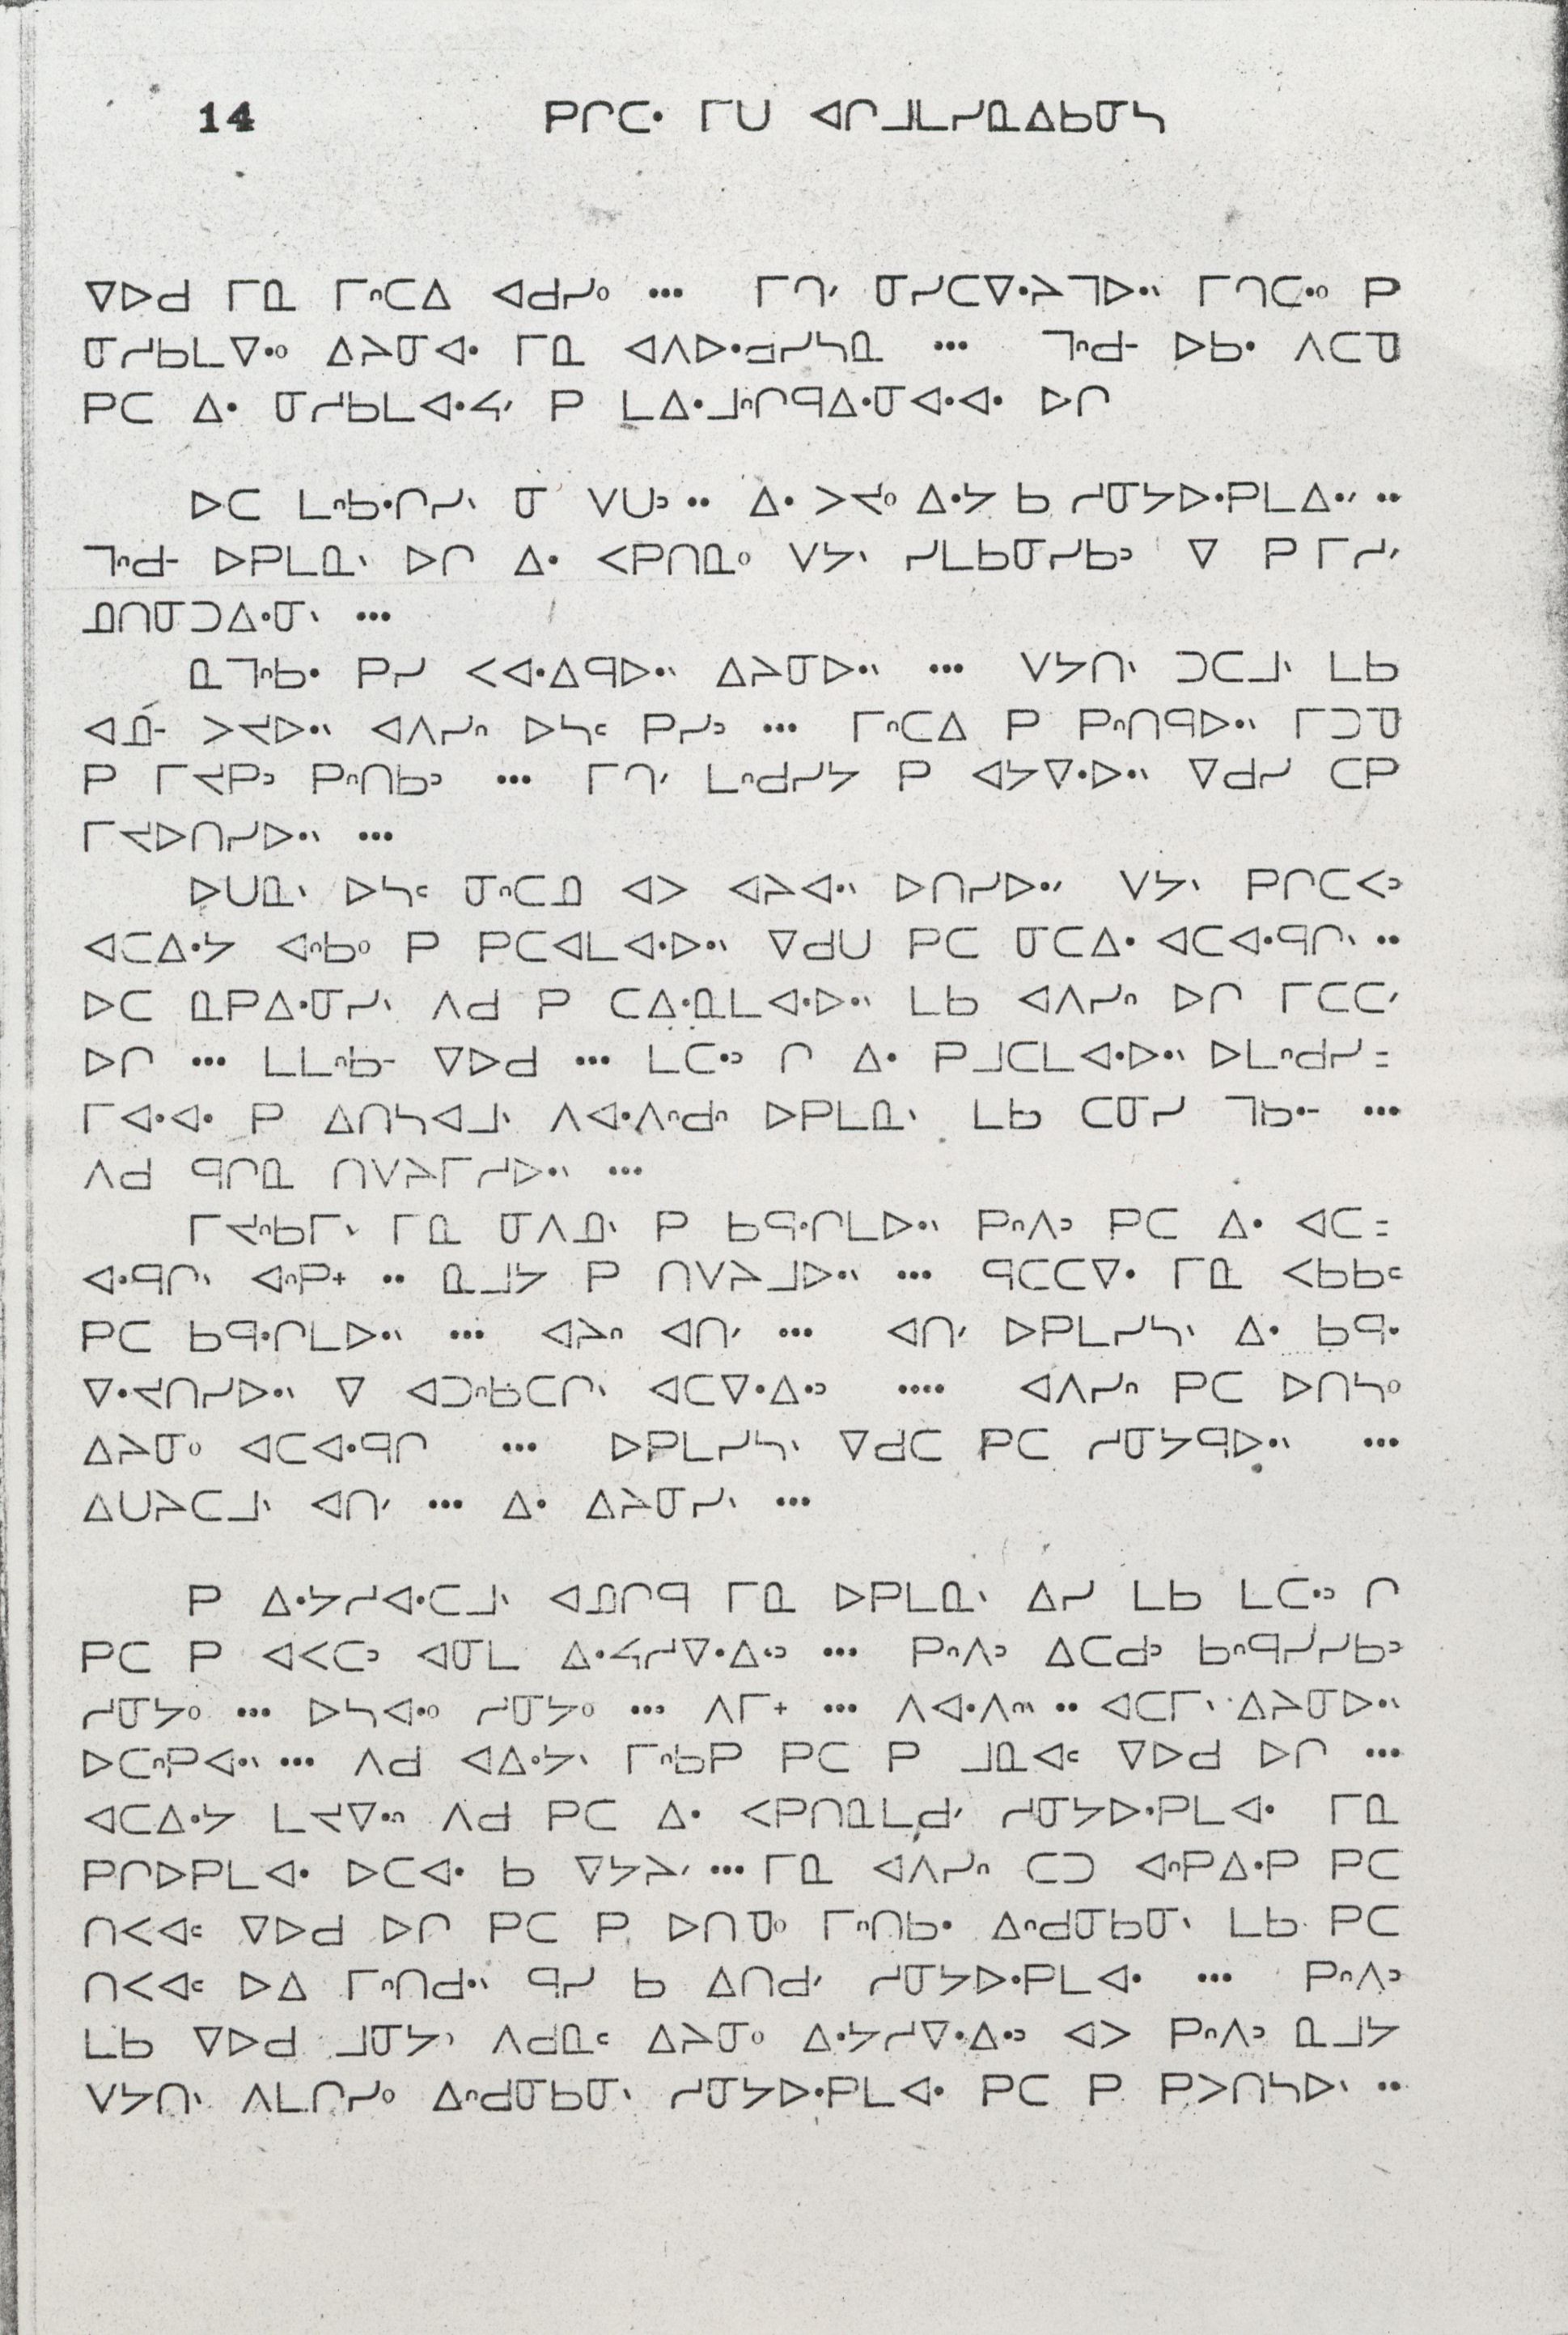 14 ᑭᒋᑕᐧ ᒥᑌ ᐊᒋᒧᒪᓯᓇᐃᑲᓂᓴ
ᐁᐅᑯ ᒥᓇ ᒥᐢᑕᐃ ᐊᑯᓯᐤ ••• ᒥᑎᐟ ᓂᓯᑕᐁᐧᔨᒣᐅᐧᐠ ᒥᑎᑕᐧᐤ ᑭ
ᓂᓯᑲᒪᐁᐧᐤ ᐃᔨᓂᐊᐧ ᒥᓇ ᐊᐱᐅᐧᓄᓯᓴᓇ ••• ᒣᐢᑯᐨ ᐅᑲᐧ ᐱᑕᓀ
ᑭᑕ ᐃᐧ ᓂᓯᑲᒪᐊᐧᔭᐟ ᑭ ᒪᐃᐧᒧᐢᒋᑫᐃᐧᓂᐊᐧᐊᐧ ᐅᒋ
ᐅᑕ ᒪᐢᑲᐧᒋᓯᐠ ᓂ ᐯᑌᐣ •• ᐃᐧ ᐳᔪᐤ ᐃᐧᔭ ᑲ ᓯᓂᔭᐅᐧᑭᒪᐃᐧᐟ ••
ᒣᐢᑯᐨ ᐅᑭᒪᓇᐠ ᐅᒋ ᐃᐧ ᐸᑭᑎᓇᐤ ᐯᔭᐠ ᓯᒪᑲᓂᓯᑲᐣ ᐁ ᑭ ᒥᓯᐟ
ᓅᑎᓂᑐᐃᐧᓂᐠ •••
ᓇᒣᐢᑲᐧ ᑭᓯ ᐸᐊᐧᐃᑫᐅᐧᐠ ᐃᔨᓂᐅᐧᐠ ••• ᐯᔭᑎᐠ ᑐᑕᒧᐠ ᒪᑲ
ᐊᓅᐨ ᐳᔪᐅᐧᐠ ᐊᐱᓯᐢ ᐅᓴᒼ ᑭᓯᐣ ••• ᒥᐢᑕᐃ ᑭ ᑭᐢᑎᑫᐅᐧᐠ ᒥᑐᓀ
ᑭ ᒥᔪᑭᐣ ᑭᐢᑎᑲᐣ ••• ᒥᑎᐟ ᒪᐢᑯᓯᔭ ᑭ ᐊᔭᐁᐧᐅᐧᐠ ᐁᑯᓯ ᑕᑭ
ᒥᔪᐅᑎᓯᐅᐧᐠ •••
ᐅᑌᓇᐠ ᐅᓴᒼ ᓂᐢᑕᓄ ᐊᐳ ᐊᔨᐊᐧᐠ ᐅᑎᓯᐅᐧᐟ ᐯᔭᐠ ᑭᒋᑕᐸᐣ
ᐊᑕᐃᐧᔭ ᐊᐢᑲᐤ ᑭ ᑭᑕᐊᒪᐊᐧᐅᐧᐠ ᐁᑯᑌ ᑭᑕ ᓂᑕᐃᐧ ᐊᑕᐊᐧᑫᒋᐠ ••
ᐅᑕ ᓇᑭᐃᐧᓂᓯᐠ ᐱᑯ ᑭ ᑕᐃᐧᓇᒪᐊᐧᐅᐧᐠ ᒪᑲ ᐊᐱᓯᐢ ᐅᒋ ᒥᑕᑕᐟ
ᐅᒋ ••• ᒪᒪᐢᑲᐨ ᐁᐅᑯ ••• ᒪᑕᐧᐣ ᒋ ᐃᐧ ᑭᒧᑕᒪᐊᐧᐅᐧᐠ ᐅᒪᐢᑯᓯ =
ᒥᐊᐧᐊᐧ ᑭ ᐃᑎᓴᐊᒧᐠ ᐱᐊᐧᐱᐢᑯᐢ ᐅᑭᒪᓇᐠ ᒪᑲ ᑕᓂᓯ ᒣᑲᐧᐨ •••
ᐱᑯ ᑫᒋᓇ ᑎᐯᔨᒥᓯᐅᐧᐠ •••
ᒥᔪᐢᑲᒥᐠ ᒥᓇ ᓂᐱᓅᐠ ᑭ ᑲᑫᐧᒋᒪᐅᐧᐠ ᑭᐢᐱᐣ ᑭᑕ ᐃᐧ ᐊᑕ =
ᐊᐧᑫᒋᐠ ᐊᐢᑭᐩ •• ᓇᒧᔭ ᑭ ᑎᐯᔨᒧᐅᐧᐠ ••• ᑫᑕᑕᐁᐧ ᒥᓇ ᐸᑲᑲᒼ
ᑭᑕ ᑲᑫᐧᒋᒪᐅᐧᐠ ••• ᐊᔨᐢ ᐊᑎᐟ ••• ᐊᑎᐟ ᐅᑭᒪᓯᓴᐠ ᐃᐧ ᑲᑫᐧ
ᐁᐧᔪᑎᓯᐅᐧᐠ ᐁ ᐊᑐᐢᑲᑕᒋᐠ ᐊᑕᐁᐧᐃᐧᐣ •••• ᐊᐱᓯᐢ ᑭᑕ ᐅᑎᓴᐤ
ᐃᔨᓂᐤ ᐊᑕᐊᐧᑫᒋ ••• ᐅᑭᒪᓯᓴᐠ ᐁᑯᑕ ᑭᑕ ᓯᓂᔭᑫᐅᐧᐠ •••
ᐃᑌᔨᑕᒧᐠ ᐊᑎᐟ ••• ᐃᐧ ᐃᔨᓂᓯᐠ •••
ᑭ ᐃᐧᔭᓯᐊᐧᑕᒧᐠ ᐊᓄᒋᑫ ᒥᓇ ᐅᑭᒪᓇᐠ ᐃᓯ ᒪᑲ ᒪᑕᐧᐣ ᒋ
ᑭᑕ ᑭ ᐊᐸᑕᐣ ᐊᓂᒪ ᐃᐧᔭᓯᐁᐧᐃᐧᐣ ••• ᑭᐢᐱᐣ ᐃᑕᑯᐣ ᑲᐢᑫᓯᓯᑲᐣ
ᓯᓂᔭᐤ ••• ᐅᓴᐊᐧᐤ ᓯᓂᔭᐤ ••• ᐱᒥᐩ ••• ᐱᐊᐧᐱᐢᐠ •• ᐊᑕᒥᐠ ᐃᔨᓂᐅᐧᐠ
ᐅᑕᐢᑭᐊᐧᐠ ••• ᐱᑯ ᐊᐃᐧᔭᐠ ᒥᐢᑲᑭ ᑭᑕ ᑭ ᒧᓇᐊᒼ ᐁᐅᑯ ᐅᒋ •••
ᐊᑕᐃᐧᔭ ᒪᔪᐁᐧᐢ ᐱᑯ ᑭᑕ ᐃᐧ ᐸᑭᑎᓇᒪᑯᐟ ᓯᓂᔭᐅᐧᑭᒪᐊᐧ ᒥᓇ
ᑭᒋᐅᑭᒪᐊᐧ ᐅᑕᐊᐧ ᑲ ᐁᔭᔨᐟ ••• ᒥᓇ ᐊᐱᓯᐢ ᑕᑐ ᐊᐢᑭᐃᐧᑭ ᑭᑕ
ᑎᐸᐊᒼ ᐁᐅᑯ ᐅᒋ ᑭᑕ ᑭ ᐅᑎᓀᐤ ᒥᐢᑎᑲᐧ ᐃᐢᑯᓂᑲᓂᐠ ᒪᑲ ᑭᑕ
ᑎᐸᐊᒼ ᐅᐃ ᒥᐢᑎᑯᐧᐠ ᑫᓯ ᑲ ᐃᑎᑯᐟ ᓯᓂᔭᐅᐧᑭᒪᐊᐧ ••• ᑭᐢᐱᐣ
ᒪᑲ ᐁᐅᑯ ᒧᓂᔭᐠ ᐱᑯᓇᒼ ᐃᔨᓂᐤ ᐃᐧᔭᓯᐁᐧᐃᐧᐣ ᐊᐳ ᑭᐢᐱᐣ ᓇᒧᔭ
ᐯᔭᑎᐠ ᐱᒪᒋᓯᐤ ᐃᐢᑯᓂᑲᓂᐠ ᓯᓂᔭᐅᐧᑭᒪᐊᐧ ᑭᑕ ᑭ ᑭᐳᑎᓴᐅᐠ ••